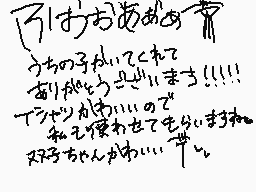 うおおおあああ
うちの子かいてくれて
ありがとうございます!!!!!
Tシャツかわいいので
私も使わせてもらいますね
双子ちゃんかわいい